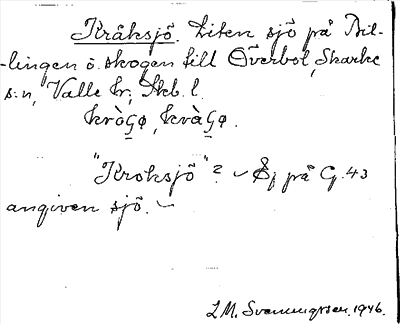 Kråksjö. Liten sjö på Bil-
-lingen ö. skogen till Överbol, Skarke
s:n, Valle hr, Skb. l.
kròɕø, kràɕø.
"Kroksjö"? ✓ Ej på G. 43
angiven sjö. ✓
L.M. Svenungsson. 1946.